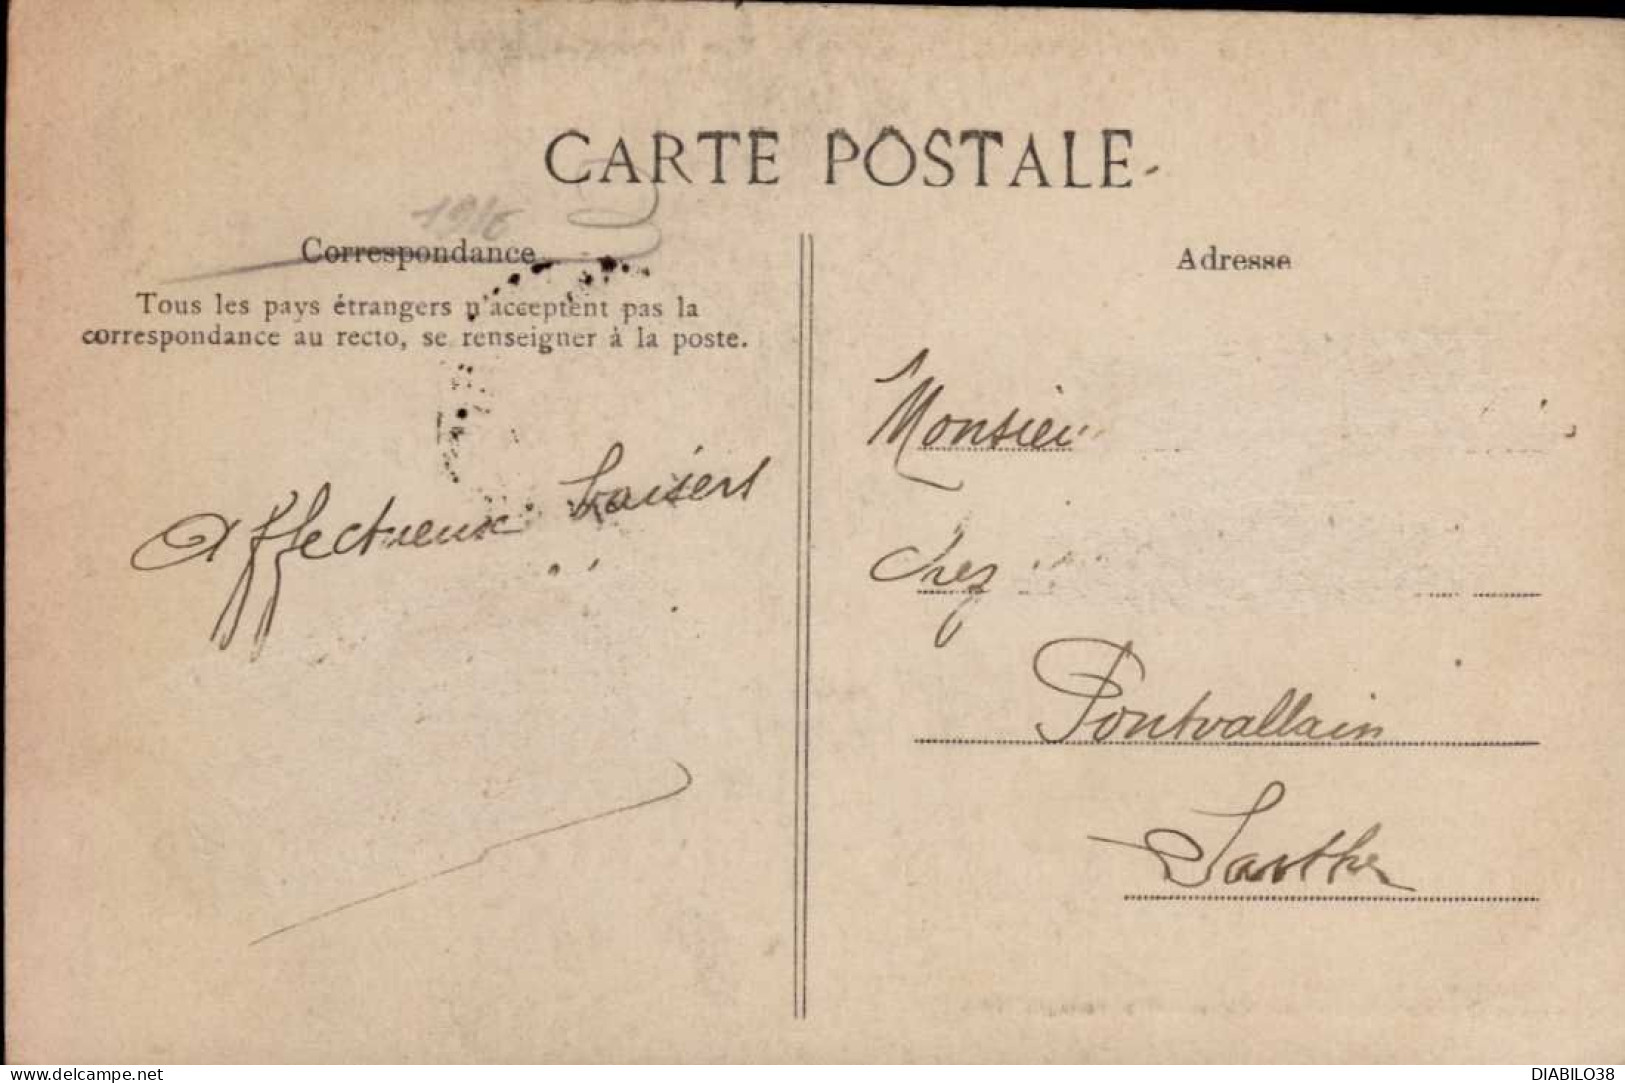 CARTE POSTALE
Correspondance
Tous les pays étrangers n'acceptent pas la
correspondance au recto, se renseigner à la poste.
Affectueux baisers
Adresse
Monsieu
Chez
Pontvallain
Sarthe
www.delcampe.net
DIABILO38